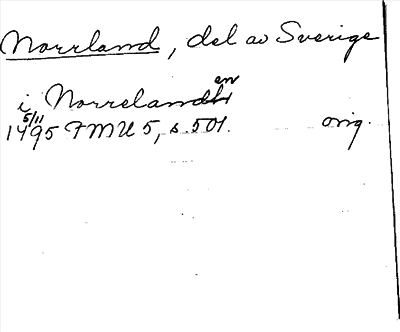 Norrland, del av Sverige
i Norrelanden
5/11 1495 FMU 5, s. 501. orig.